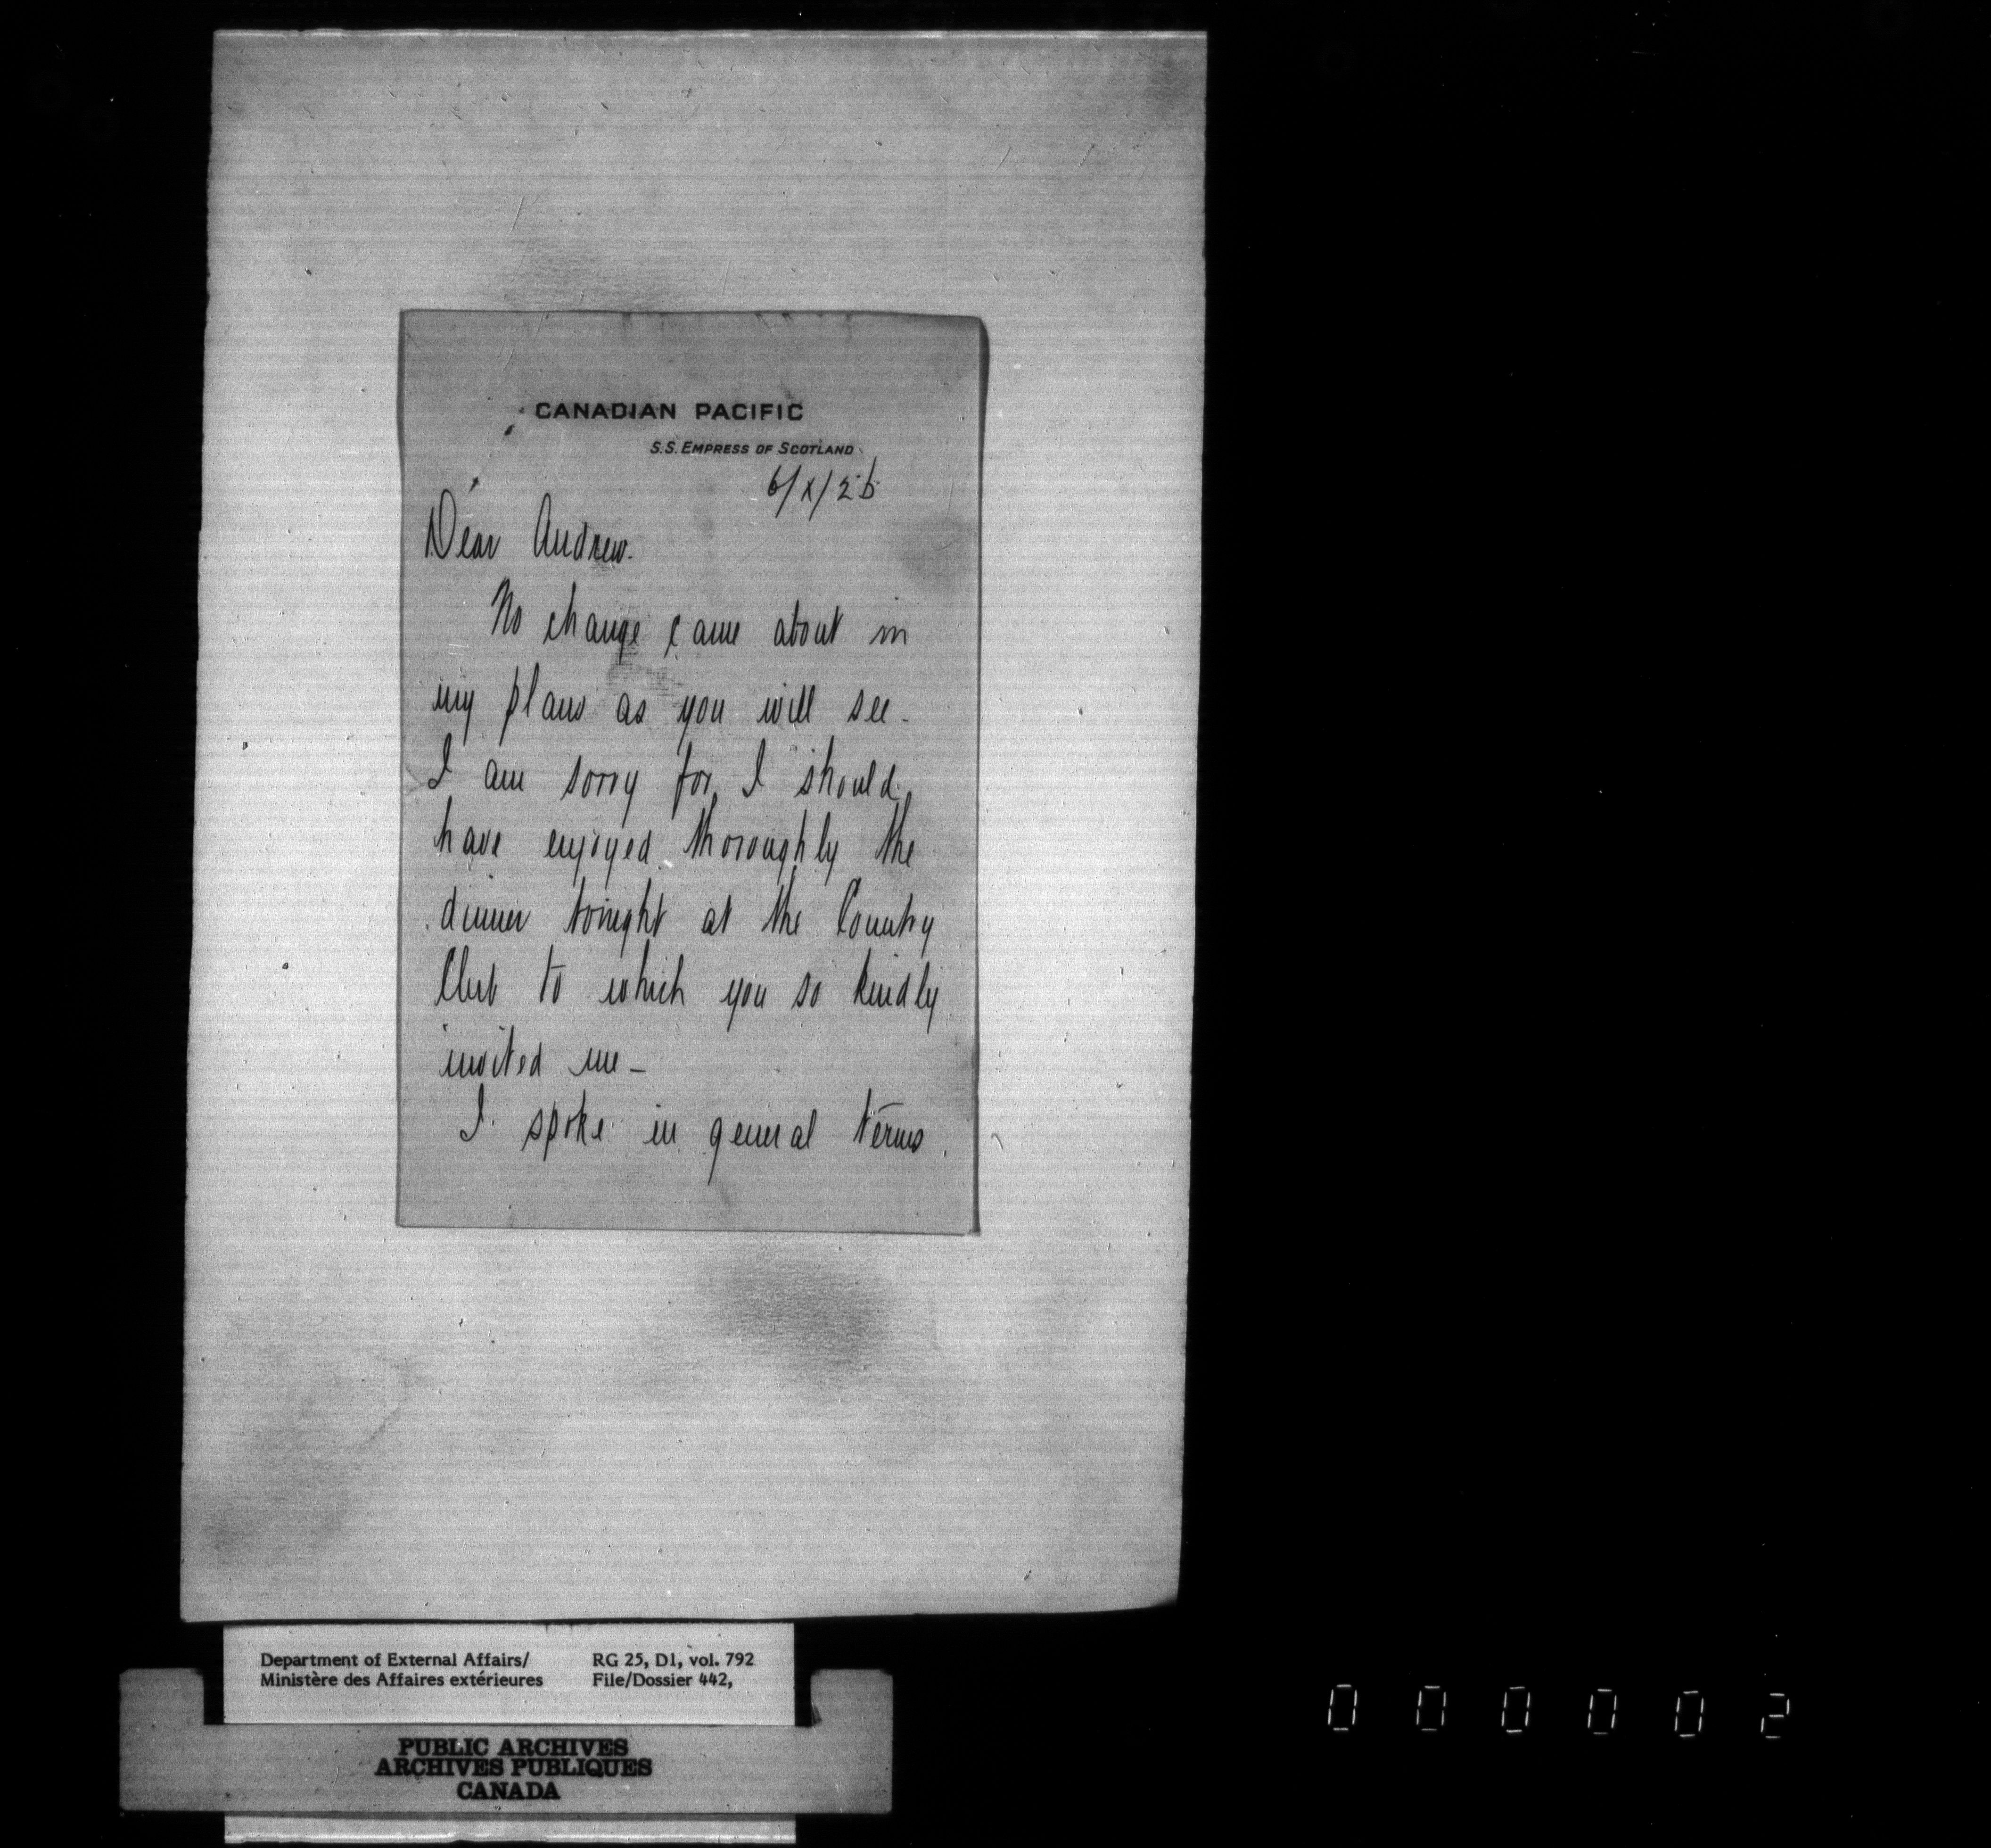 CANADIAN PACIFIC
S.S. EMPRESS OF SCOTLAND
6/X/26
Dear Andrew.
No change came about in
my plans as you will see.
I am sorry for I should
have enjoyed thoroughly the
dinner tonight at the Country
Club to which you so kindly
invited me _
I spoke in general terms
Department of External Affairs/
Ministère des Affaires extérieures
RG 25, D1, vol. 792
File/Dossier 442,
PUBLIC ARCHIVES
ARCHIVES PUBLIQUES
CANADA
0 0 0 0 0 2